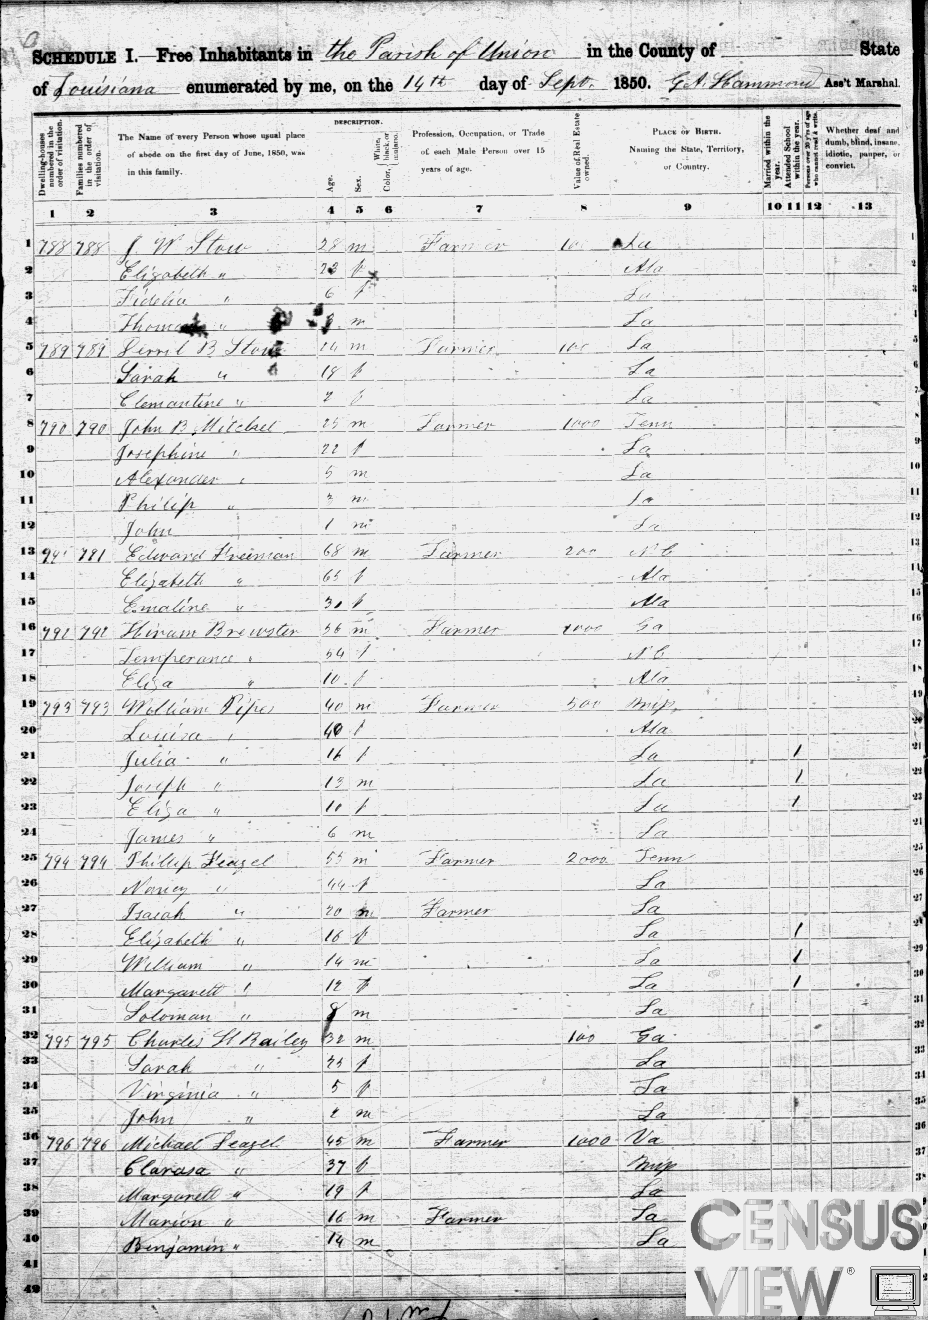 SCHEDULE I.—Free Inhabitants in the Parish of Union in the County of State
of Louisiana enumerated by me, on the 14th day of Sept. 1850. G A Hammond Ass't Marshal.
Dwelling-houses numbered in the order of visitation.
Families numbered in the order of visitation.
The Name of every Person whose usual place of abode on the first day of June, 1850, was in this family.
DESCRIPTION.
Age.
Sex.
Color, White, black, or mulatto.
Profession, Occupation, or Trade of each Male Person over 15 years of age.
Value of Real Estate owned.
PLACE OF BIRTH. Naming the State, Territory, or Country.
Married within the year.
Attended School within the year.
Persons over 20 y'rs of age who cannot read & write.
Whether deaf and dumb, blind, insane, idiotic, pauper, or convict.
1 2 3 4 5 6 7 8 9 10 11 12 13
1 788 788 J W Stow 28 m Farmer 100 La
2 Elizabeth " f Ala
3 Fidelia " 6 f La
4 Thomas " m La
5 789 789 B Stow 24 m Farmer 100 La
6 Sarah " 18 f La
7 Clemantine " 2 f La
8 790 790 John B Mitchel 25 m Farmer 1000 Tenn
9 Josephine " 22 f La
10 Alexander " 5 m La
11 Philip " 3 m La
12 John 1 m La
13 791 791 Edward Freeman 68 m Farmer 200 N C
14 Elizabeth " 65 f Ala
15 Emaline " 30 f Ala
16 792 792 Hiram Brewster 56 m Farmer 1000 Ga
17 Temperance " 54 f N C
18 Eliza " 10 f Ala
19 793 793 William Pipes 40 m Farmer 500 Mip
20 Louisa " 40 f Ala
21 Julia " 16 f La 1
22 Joseph " 13 m La 1
23 Eliza " 10 f La 1
24 James " 6 m La
25 794 794 Phillip Feazel 55 m Farmer 2000 Tenn
26 Nancy " 44 f La
27 Isaiah " 20 m Farmer La
28 Elizabeth " 16 f La 1
29 William " 14 m La 1
30 Margarett " 12 f La 1
31 Soloman " 8 m La
32 795 795 Charles H Bailey 32 m 100 Ga
33 Sarah " 25 f La
34 Virginia " 5 f La
35 John " 2 m La
36 796 796 Michael Feazel 45 m Farmer 1000 Va
37 Clarasa " 37 f Mip
38 Margarett " 19 f La
39 Marion " 16 m Farmer La
40 Benjamin " 14 m La
41
CENSUS
VIEW ®